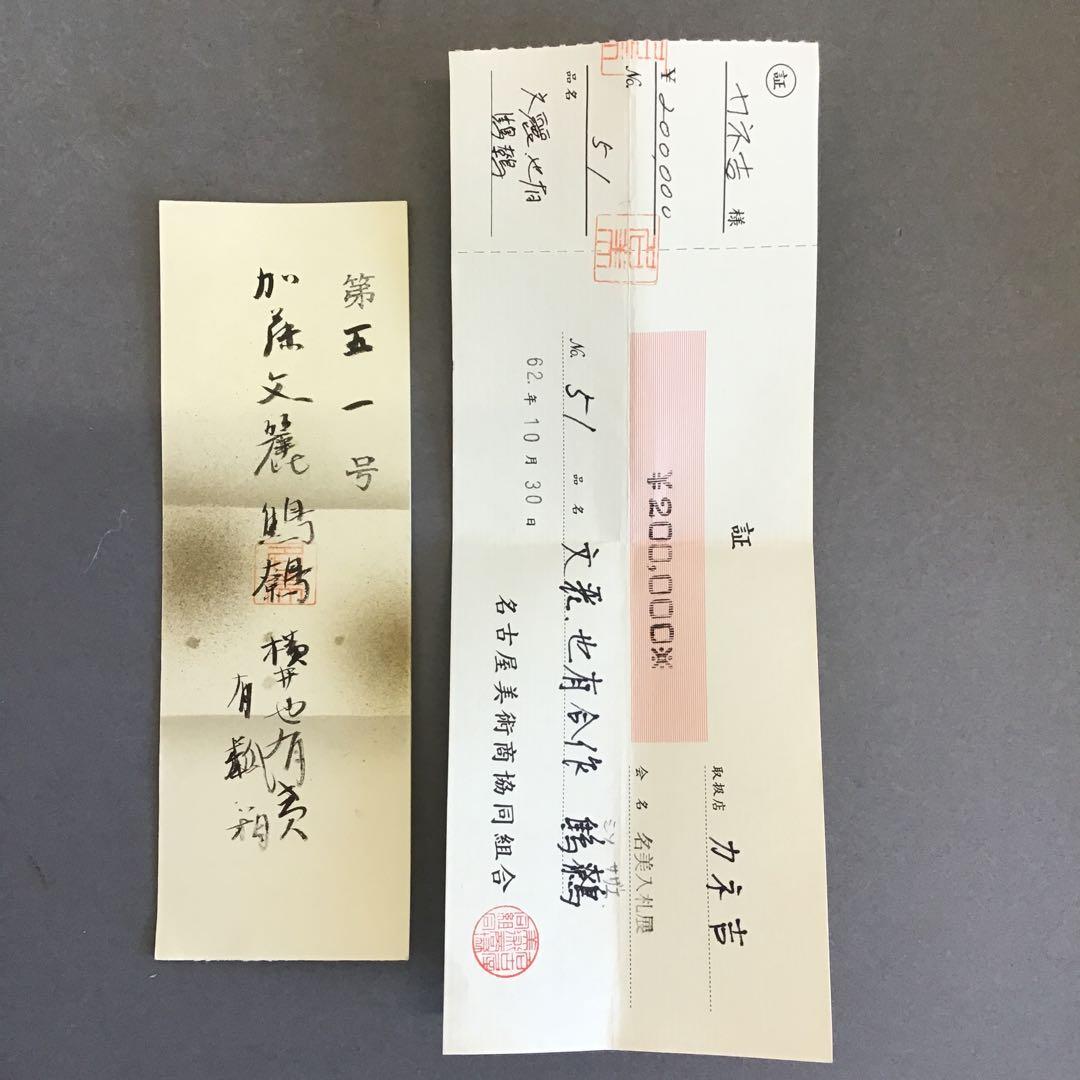 第五一号
加藤文麗鵙鶉
横井也有賛
有瓢箱
証
カネ吉 様
¥200,000
No. 51
品名
文麗 也有
証
¥200,000※
取扱店 カネ吉
会名 名美入札展
No. 51 品名 文飛.也有合作
62.年10月30日
名古屋美術商協同組合